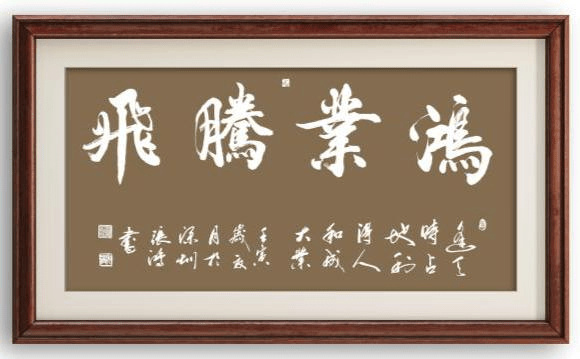 鴻業騰飛
逢天
時占
地利
得人
和成
大業
壬寅
歲夏
月於
深圳
張鴻
書